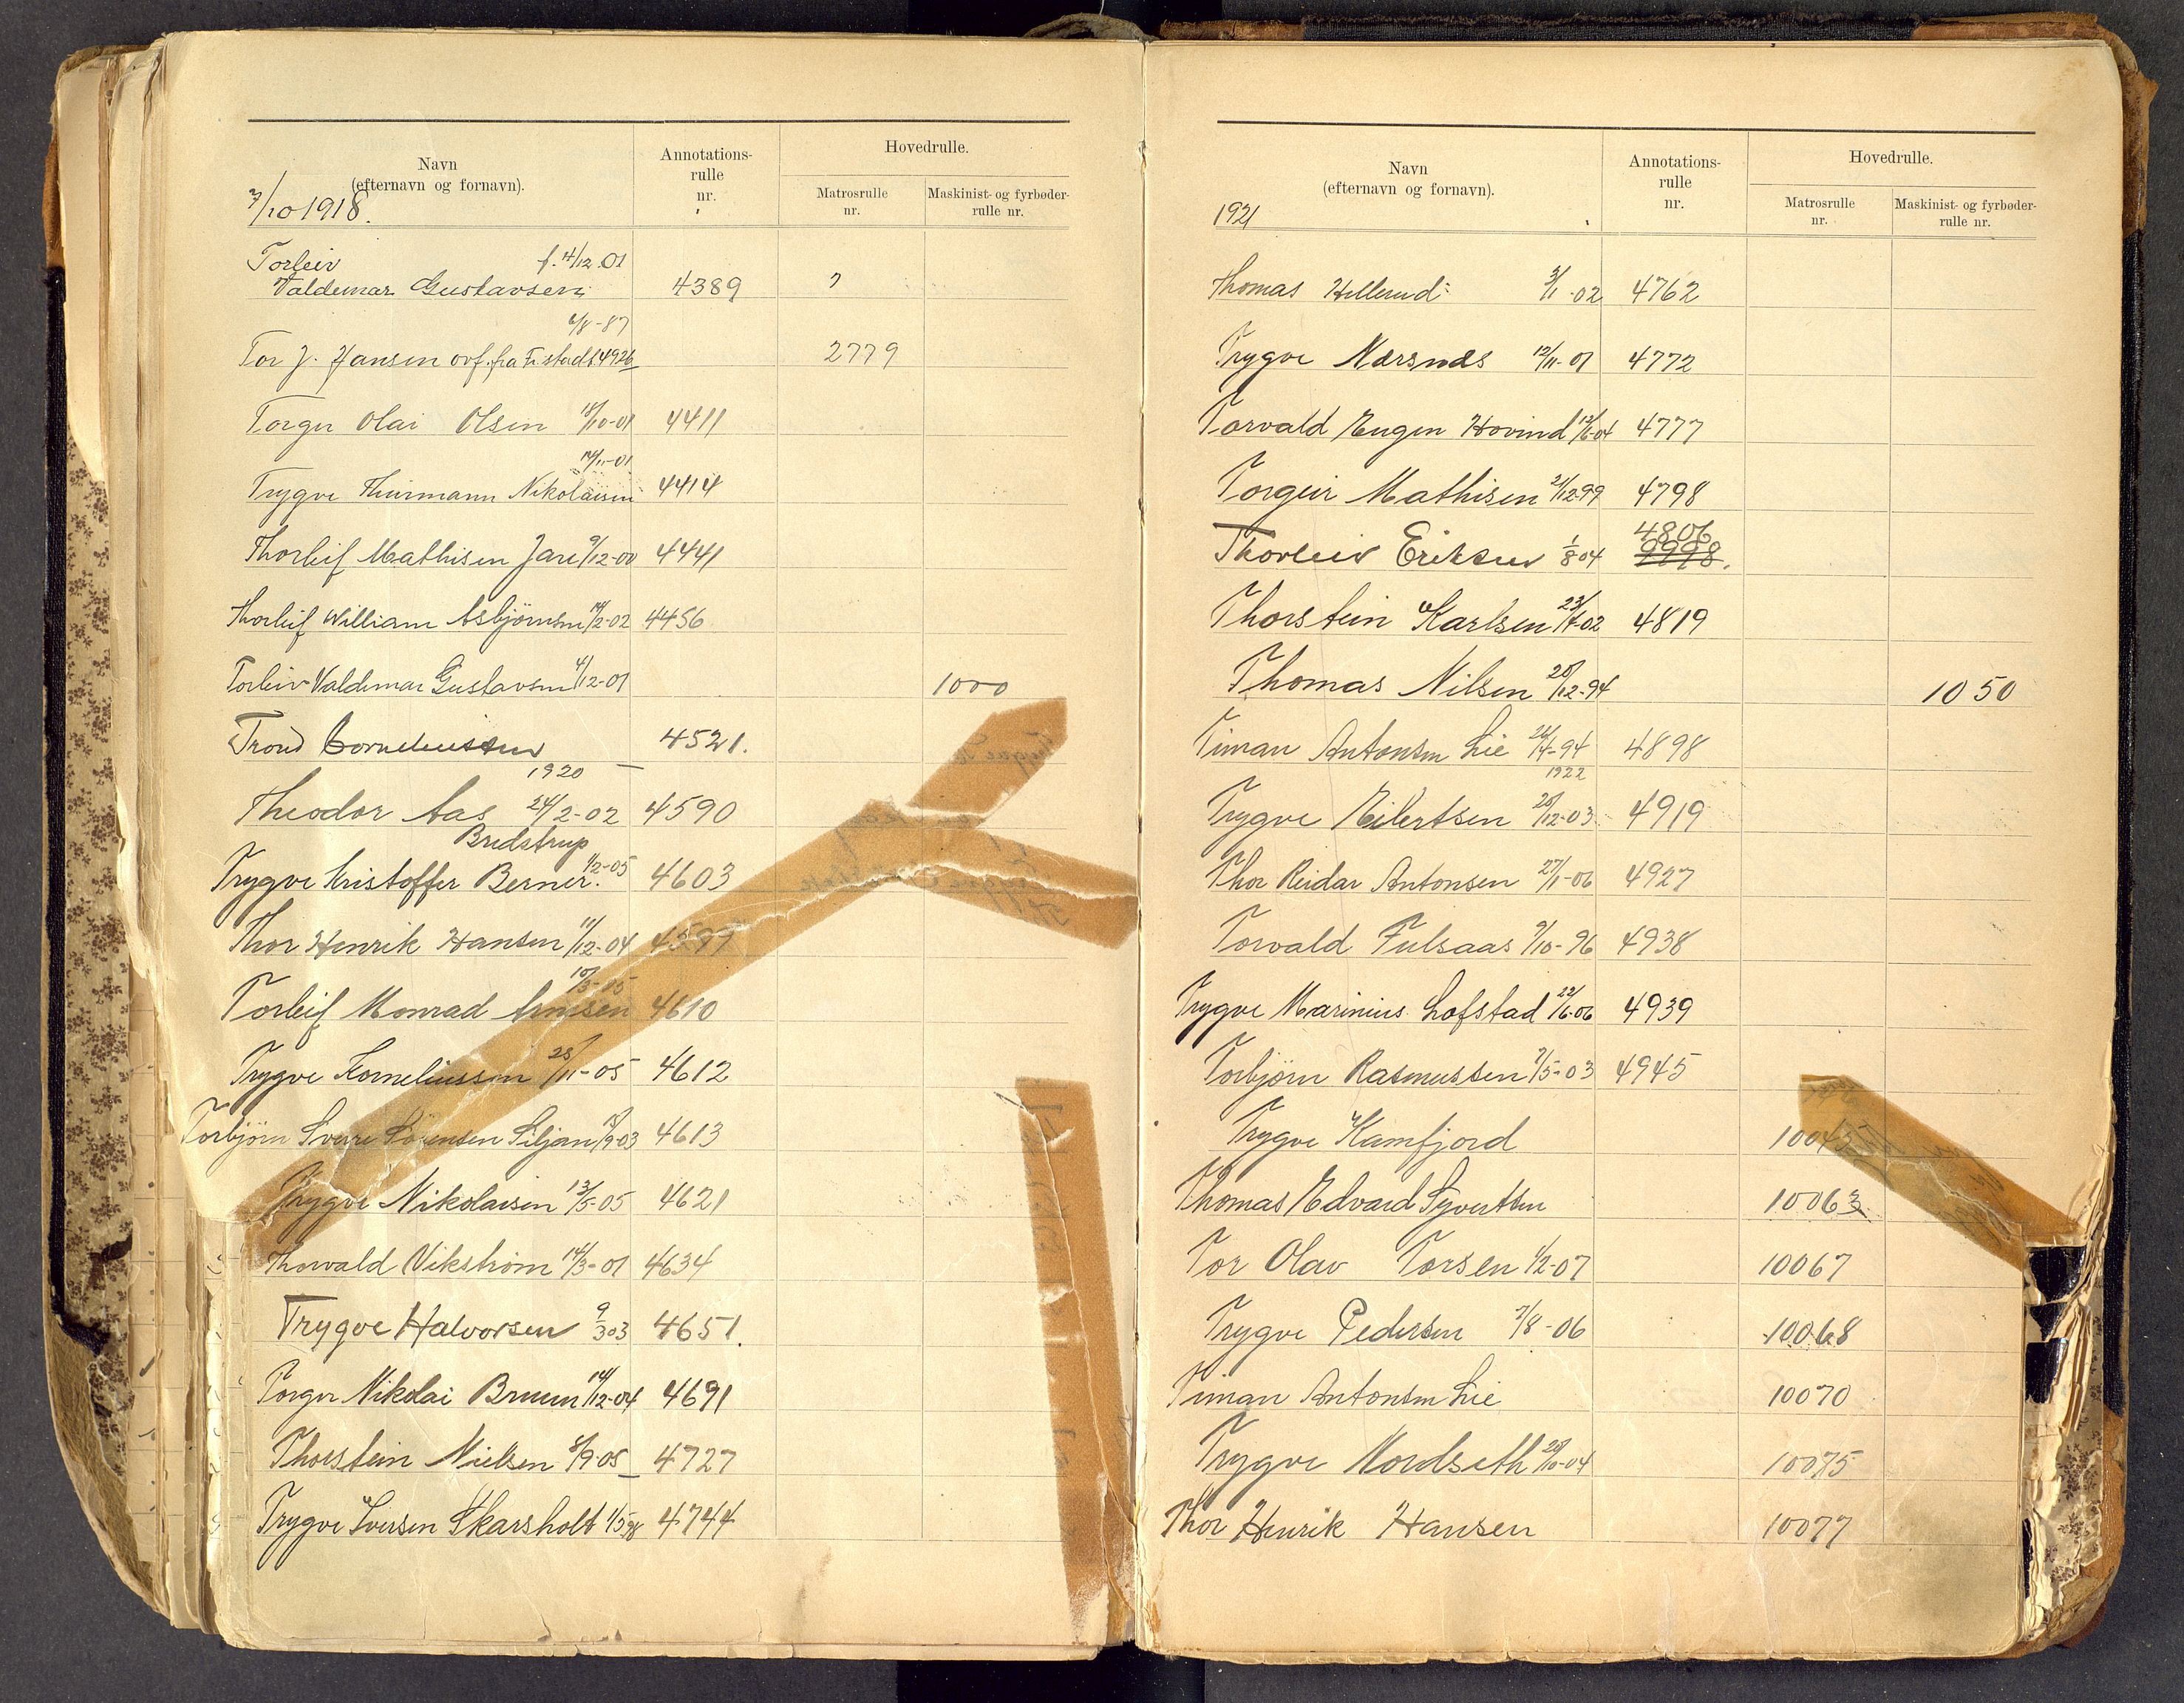 Navn
(efternavn og fornavn).
Annotations-
rulle
nr.
Hovedrulle.
Matrosrulle
nr.
Maskinist- og fyrbøder-
rulle nr.
3/10 1918.
Torleiv f. 4/12.01
Valdemar Gustavsen 4389 ?
6/8-87
Tor J. Hansen ovf. fra Fr.stad 4926 2779
Torger Olai Olsen 18/10-01 4411
14/11-01
Trygve Thurmann Nikolaisen 4414
Thorleif Mathisen Jare 9/12-00 4441
Thorleif William Asbjørnsen 14/2-02 4456
Torleiv Valdemar Gustavsen 4/12-01 1000
Trond Corneliussen 4521.
1920 —
Theodor Aas 24/2-02 4590
Bredstrup
Trygve Kristoffer Berner. 1/2-05 4603
Thor Henrik Hansen 11/12-04 4599
10/3-05
Torleif Monrad Arnesen 4610
Trygve Korneliussen 25/11-05 4612
Torbjørn Sverre Sørensen Siljan 18/9-03 4613
Trygve Nikolaisen 13/5-05 4621
Thorvald Vikstrøm 14/3-01 4634
Trygve Halvorsen 9/3 03 4651.
Torger Nikolai Bruun 14/12-04 4691
Thorstein Nielsen 8/9-05 4727
Trygve Iversen Skarsholt 1/5-98 4744
Navn
(efternavn og fornavn).
Annotations-
rulle
nr.
Hovedrulle.
Matrosrulle
nr.
Maskinist- og fyrbøder-
rulle nr.
1921
Thomas Hillerud 3/1-02 4762
Trygve Nærsnæs 12/11-01 4772
Torvald Eugen Hovind 12/6-04 4777
Torgeir Mathisen 21/12-99 4798
4806
Thorleiv Eriksen 1/8 04 9998.
Thorstein Karlsen 23/4-02 4819
Thomas Nilsen 20/12-94 1050
Timan Antonsen Lie 24/4-94 4898
1922
Trygve Eilertsen 28/12-03 4919
Thor Reidar Antonsen 27/1-06 4927
Torvald Fulsaas 9/10-96 4938
Trygve Marinius Lofstad 22/6-06 4939
Torbjørn Rasmussen 7/5-03 4945
Trygve Kamfjord 10045
Thomas Edvard Syvertsen 10063
Tor Olav Torsen 1/2-07 10067
Trygve Pedersen 7/8-06 10068
Timan Antonsen Lie 10070
Trygve Nordseth 28/10-04 10075
Thor Henrik Hansen 10077